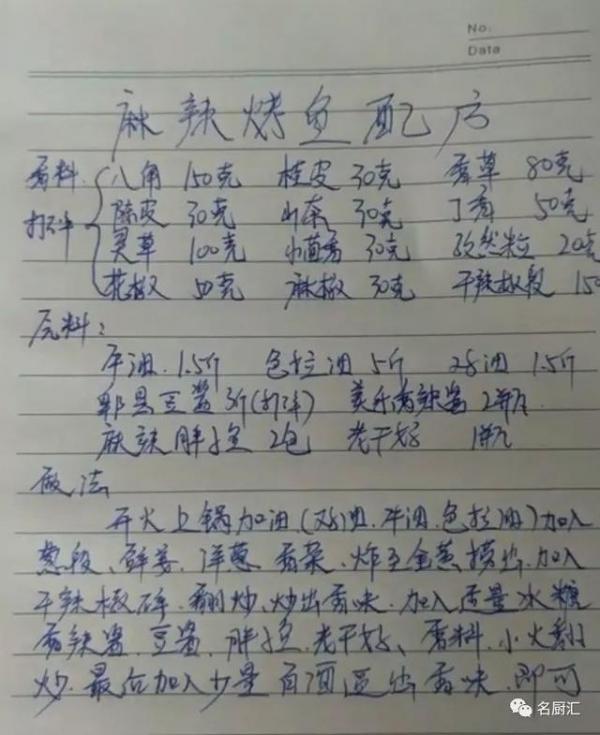 No:
Data
麻辣烤鱼配方
香料 八角 150克 桂皮 30克 香草 80克
打碎 陈皮 30克 山奈 30克 丁香 50克
灵草 100克 小茴香 30克 孜然粒 20克
花椒 50克 麻椒 30克 干辣椒段 150
底料:
牛油 1.5斤 色拉油 5斤 鸡油 1.5斤
郫县豆酱 3斤(打碎) 美乐香辣酱 2瓶
麻辣胖子鱼 2包 老干妈 1瓶
做法
开火上锅加油(鸡油.牛油.色拉油)加入
葱段、鲜姜、洋葱、香菜、炸至金黄捞出.加入
干辣椒碎.翻炒、炒出香味.加入适量冰糖
香辣酱、豆酱、胖子鱼、老干妈、香料.小火翻
炒.最后加入少量白酒逼出香味.即可
名厨汇